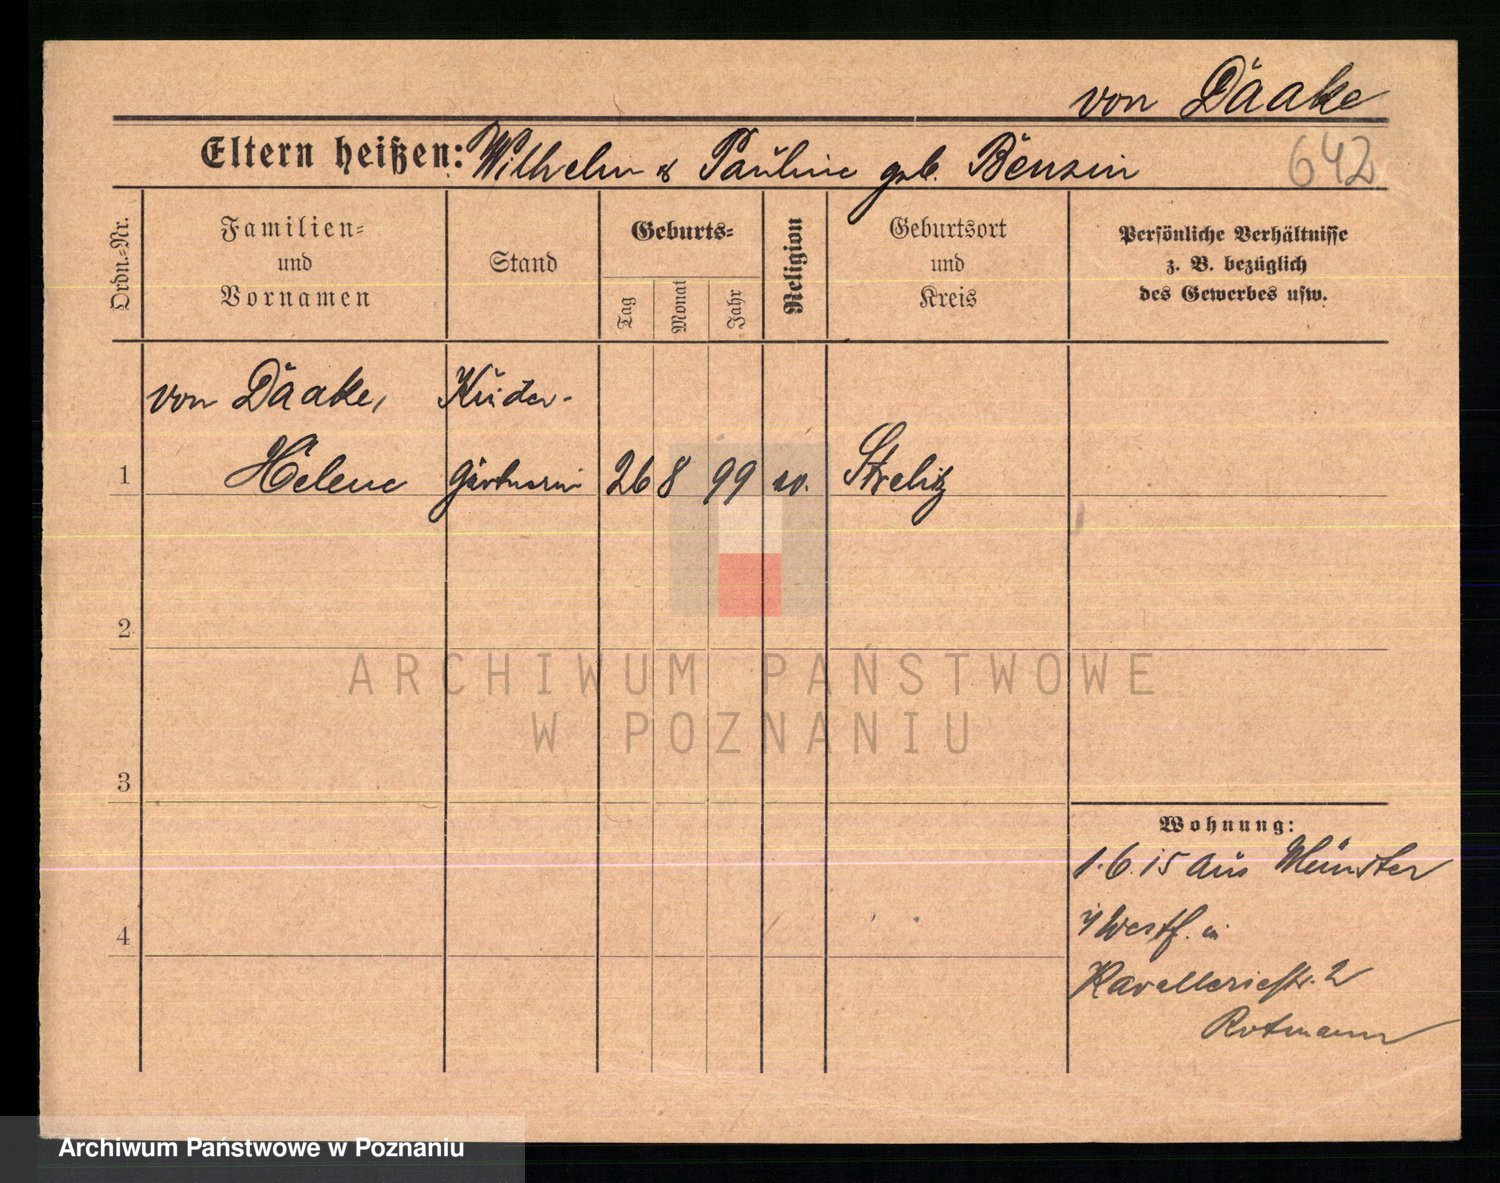 von Däake
Eltern heißen: Wilhelm & Pauline geb. Bensin
642
Ordn.-Nr.
Familien-
und
Vornamen
Stand
Geburts-
Tag
Monat
Jahr
Religion
Geburtsort
und
Kreis
Persönliche Verhältnisse
z. B. bezüglich
des Gewerbes usw.
von Däake, Kinder-
1 Helene gärtnerin 26 8 99 ev. Strelitz
2
3
4
Wohnung:
1.6.15 aus Münster
i/Westf. in
Kavalleriestr. 2
Rotmann
ARCHIWUM PAŃSTWOWE
W POZNANIU
Archiwum Państwowe w Poznaniu